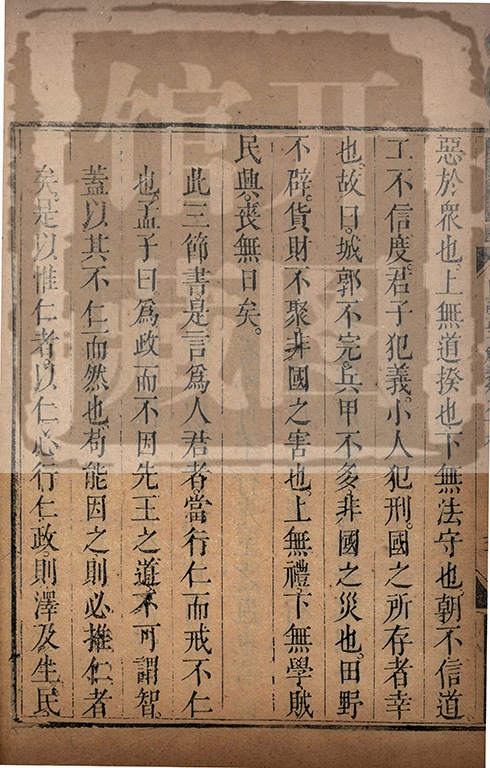 惡於眾也。上無道揆也下無法守也朝不信道
工不信度。君子犯義。小人犯刑。國之所存者幸
也。故曰。城郭不完。兵甲不多。非國之災也。田野
不辟。貨財不聚。非國之害也。上無禮。下無學。賊
民興。喪無日矣。
此三節書是言爲人君者。當行仁而戒不仁
也。孟子曰爲政而不因先王之道。不可謂智。
蓋以其不仁而然也。苟能因之則必推仁者
矣。是以惟仁者。以仁心行仁政。則澤及生民